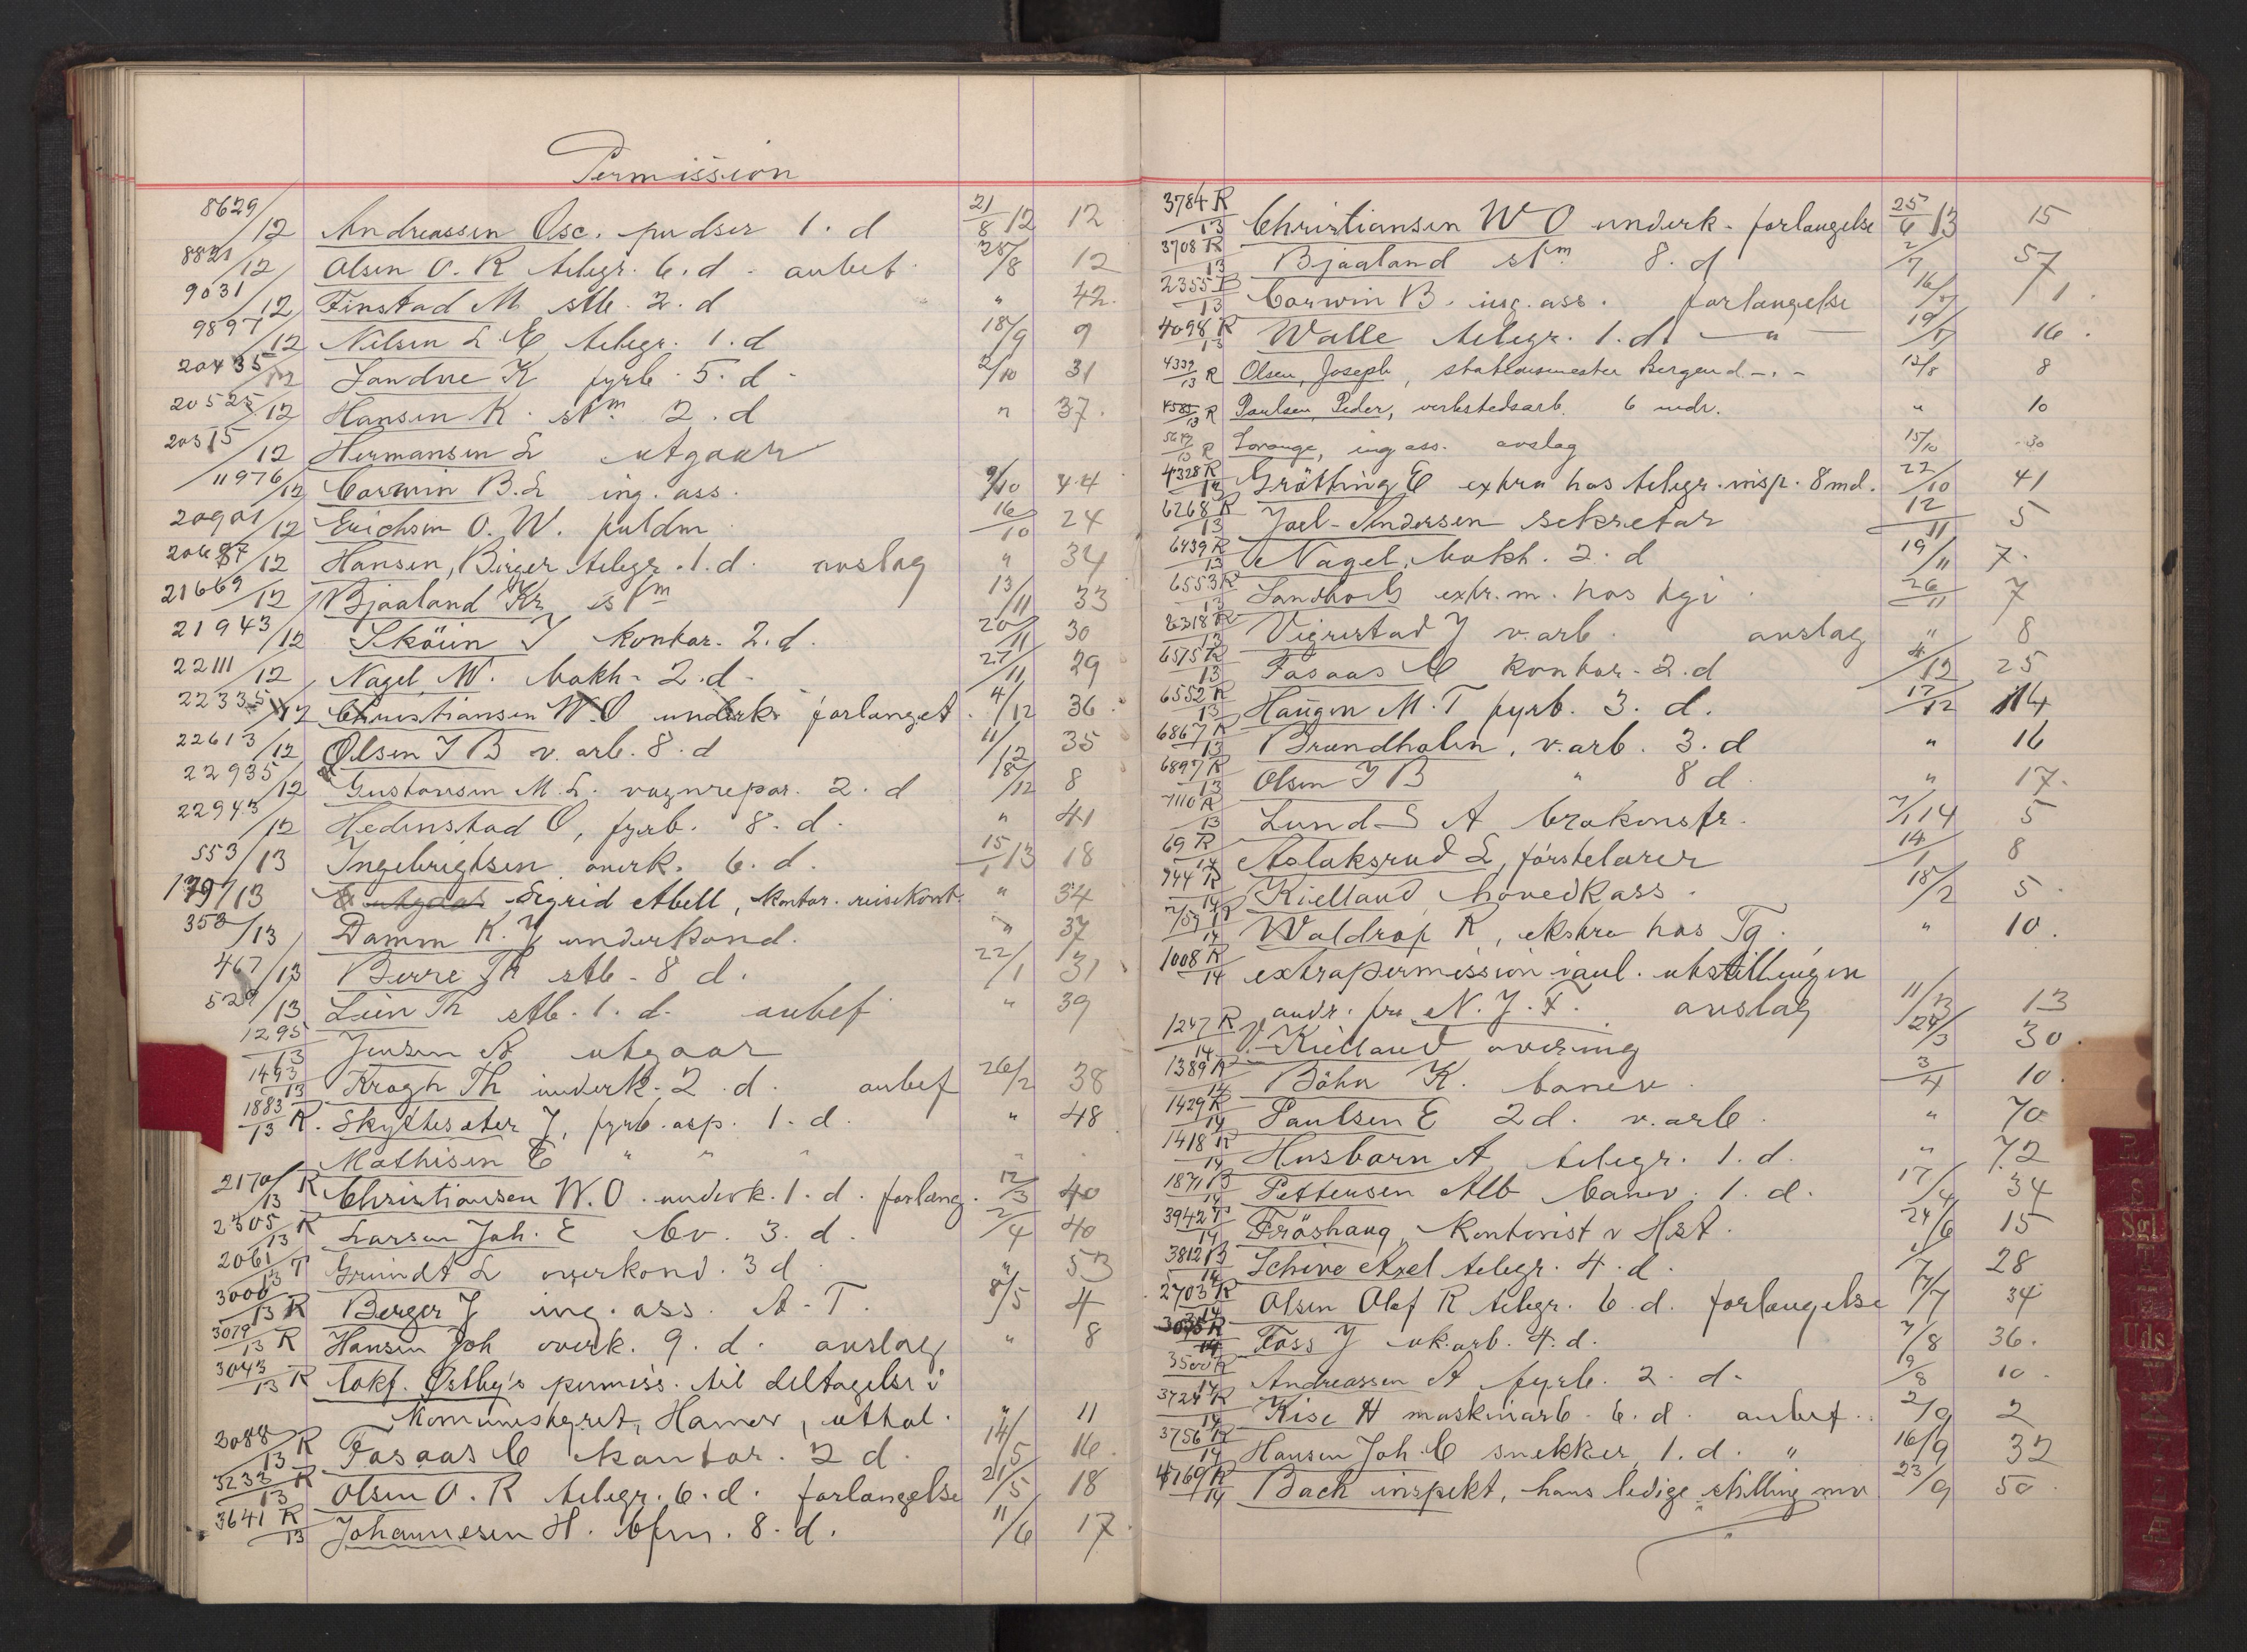 Permission
8629/12 Andreassen Osc. pudser 1. d 21/8 12 12
8821/12 Olsen O. R telegr. 6. d. anbef. 28/8 12
9031/12 Finstad M stb. 2. d " 42.
9897/12 Nilsen L. E telegr. 1. d 18/9 9
20435/12 Sandne K fyrb. 5. d. 2/10 31
20525/12 Hansen K. stm 2. d " 37.
20315/12 Hermansen L utgaar
11976/12 Corwin B. L ing. ass. 9/10 44
20901/12 Erichsen O. W. puldm. 16/10 24
20687/12 Hansen, Birger telegr. 1. d. avslag " 34
21669/12 Bjaaland Kr. stm 13/11 33
21943/12 Sköien J kontor. 2. d. 20/11 30
22111/12 Nagel, W. bokh. 2. d. 27/11 29
22335/12 Christiansen W. O underk. forlanget. 4/12 36.
22613/12 Olsen J B v. arb. 8. d 11/12 35
22935/12 Gustavsen M. L. vognrepar. 2. d 18/12 8
22943/12 Hedenstad O, fyrb. 8. d. " 41
553/13 Ingebrigtsen overk. 6. d. 15/1 13 18
179/13 Sigrid Abell, kontor. reisekont. " 34
353/13 Damm K. J. underkond. " 37
467/13 Berre Th stb. 8 d. 22/1 31
529/13 Lien Th stb. 1. d. anbef. " 39
1295/13 Jensen A utgaar
1493/13 Krogh Th underk. 2. d. anbef 26/2 38
1883/13 R. Skyttesæter J, fyrb. asp. 1. d. " 48
Mathisen E " " " "
2170/13 R Christiansen W. O. underk. 1. d. forlang. 12/3 40
2305/13 R Larsen Joh. E bv. 3. d. 2/4 40
2061/13 T Grundt L overkond. 3 d. " 53
3000/13 R Berger J ing. ass. A. T. 8/5 4
3079/13 R Hansen Joh overk. 9. d. avslag " 8
3043/13 R lokf. Østby's permiss. til deltagelse i
kommunestyret, Hamar, uttal. " 11
3088/13 R Fasaas C kontor. 2 d. 14/5 16.
3233/13 R Olsen O. R telegr. 6. d. forlangelse 21/5 18
3641 R/13 Johannesen H. bfm. 8. d. 11/6 17.
3784 R/13 Christiansen W O underk. forlangelse 25/6 13 15
3708 R/13 Bjaaland stm 8. d 2/7 57
2355 B/13 Corwin B. ing. ass. forlangelse 16/7 1.
4098 R/13 Walle telegr. 1. d. — " — 19/7 16.
4339/13 R Olsen, Joseph, stationsmester Bergen d. - " - 13/8 8
4585/13 R Paulsen, Peder, verkstedsarb. 6 mdr. " 10
5647/13 R Lorange, ing ass. avslag 15/10 30
4328 R/13 Grötting E extra hos telegr. insp. 8 md. 22/10 41
6268 R/13 Joel-Andersen sekretær 12/11 5
6439 R/13 Nagel, bokh. 2. d 19/11 7.
6553 R/13 Sandholt extr. m. hos tgi. 26/11 7
6318 R/13 Vigrestad J v. arb. avslag " 8
6575 R/13 Fasaas C kontor. 2. d 4/12 25
6552 R/13 Haugen M. T fyrb. 3. d. 17/12 14
6867 R/13 Brandholen, v. arb. 3. d " 16
6897 R/13 Olsen J B " 8 d. " 17.
7110 R/13 Lund S A brokonstr. 7/1 14 5
69 R/14 Aslaksrud L, förstelærer 14/1 8
944 R/14 Kielland hovedkass. 18/2 5.
759 R/14 Waldrop R, ekstra hos Tg. " 10.
1008 R/14 extrapermission i anl. utstillingen
andr. fra N. J. F. avslag 11/3 13
1247 R/14 Kielland overing 24/3 30.
1389 R/14 Böhn K. banev. 3/4 10.
1429 R/14 Paulsen E 2 d. v. arb. " 70
1418 R/14 Husbarn A telegr. 1. d. " 72
1871 B/14 Pettersen Alb banev. 1. d. 17/4 34
3942 T/14 Fröshaug, kontorist v Hst. 24/6 15
3812 B/14 Schive Axel telegr. 4. d. 1/7 28
2703 R/14 Olsen Olaf R telegr. 6. d. forlangelse 17/7 34
3075 R/14 Foss J vk. arb. 4. d. 7/8 36.
3500 R/14 Andreassen A fyrb. 2. d. 19/8 10.
3724 R/14 Kise H maskinarb. 6. d. anbef. 2/9 2
3756 R/14 Hansen Joh. C snekker 1. d. " 16/9 32
4769 R/14 Bach inspekt, hans ledige stilling mv 23/9 50.
Sgl
T
Uds